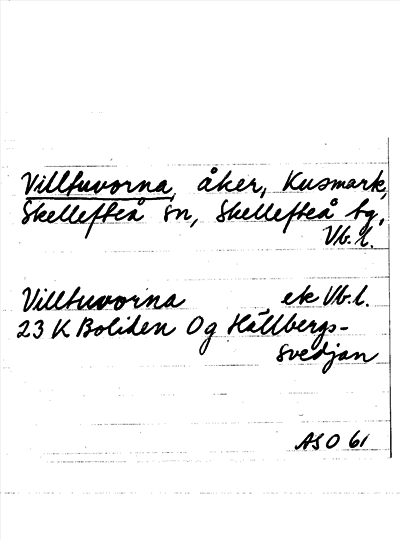 Villtuvorna, åker, Kusmark,
Skellefteå sn, Skellefteå tg,
Vb. l.
Villtuvorna ek Vb. l.
23 K Boliden 0 g Hällbergs-
svedjan
ASO 61